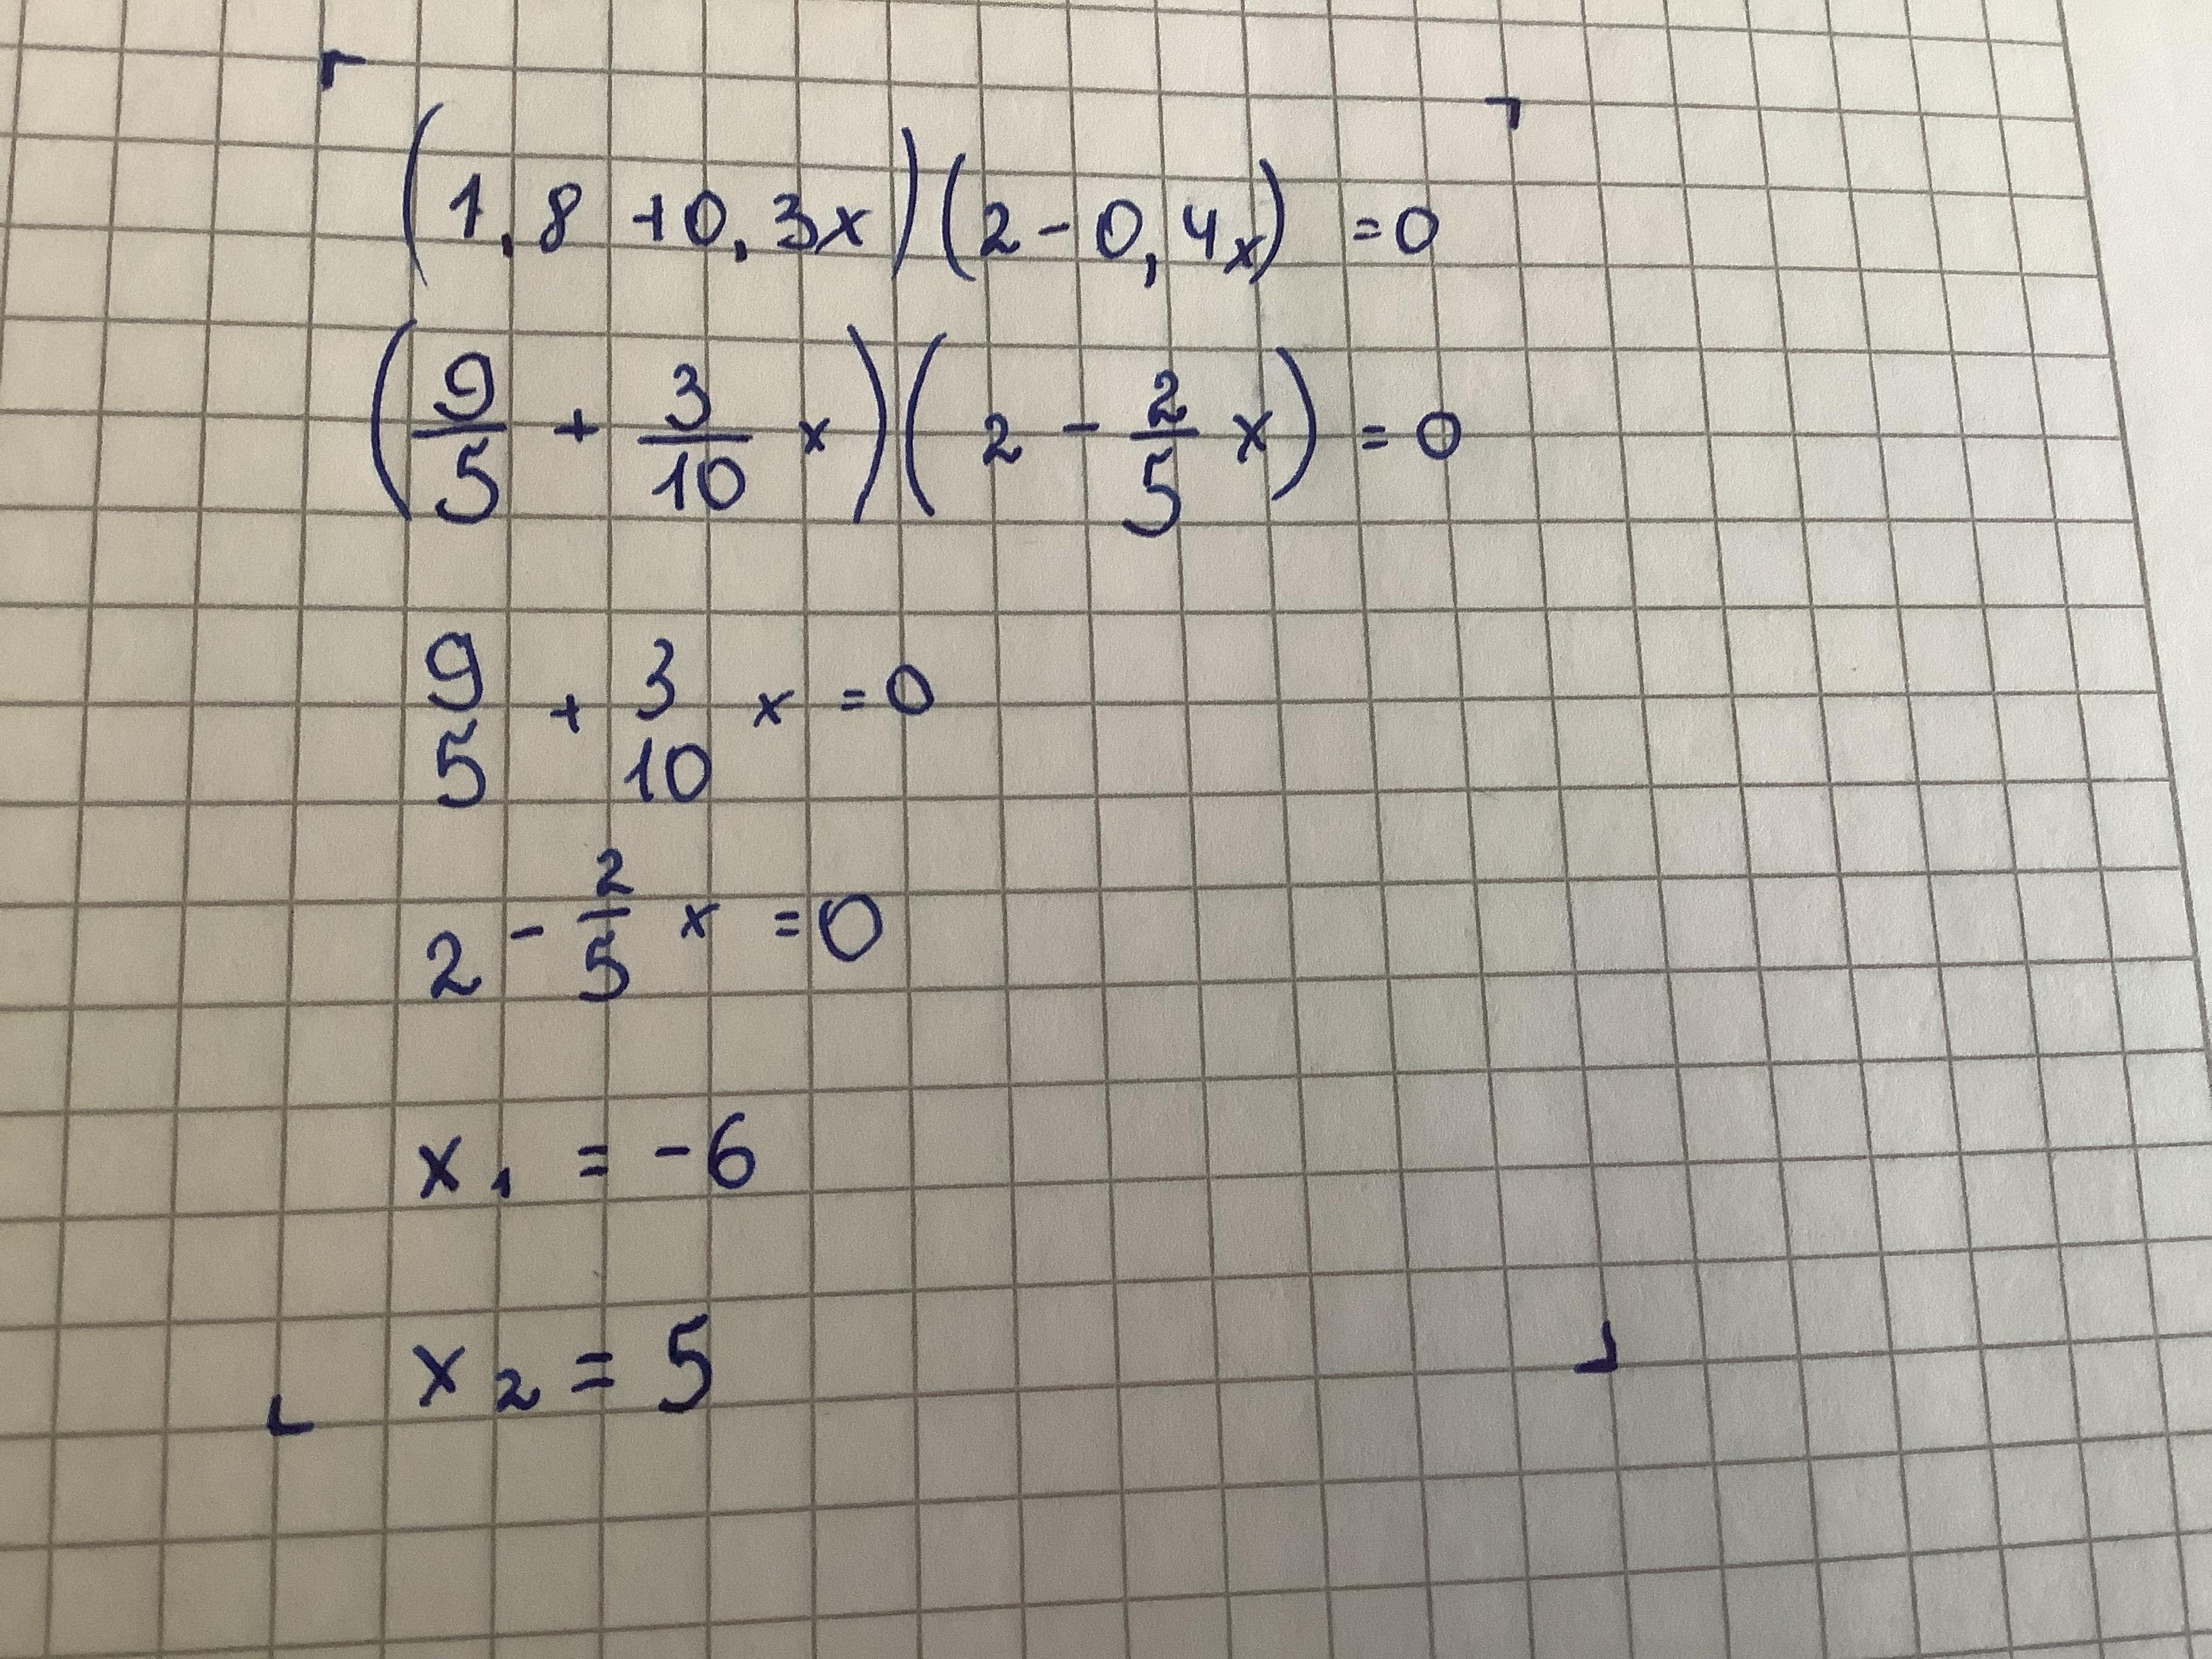 (1,8 +0,3x)(2-0,4x) =0
(9/5 + 3/10 x)(2 - 2/5 x) = 0
9/5 + 3/10 x =0
2 - 2/5 x =0
x₁ = -6
x₂ = 5